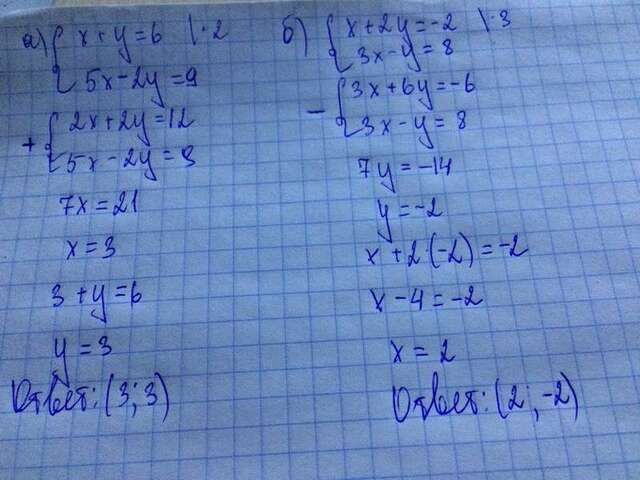 а) { x + y = 6 | · 2
5x - 2y = 9
+ { 2x + 2y = 12
5x - 2y = 9
7x = 21
x = 3
3 + y = 6
y = 3
Ответ: (3; 3)
б) { x + 2y = -2 | · 3
3x - y = 8
- { 3x + 6y = -6
3x - y = 8
7y = -14
y = -2
x + 2 · (-2) = -2
x - 4 = -2
x = 2
Ответ: (2; -2)